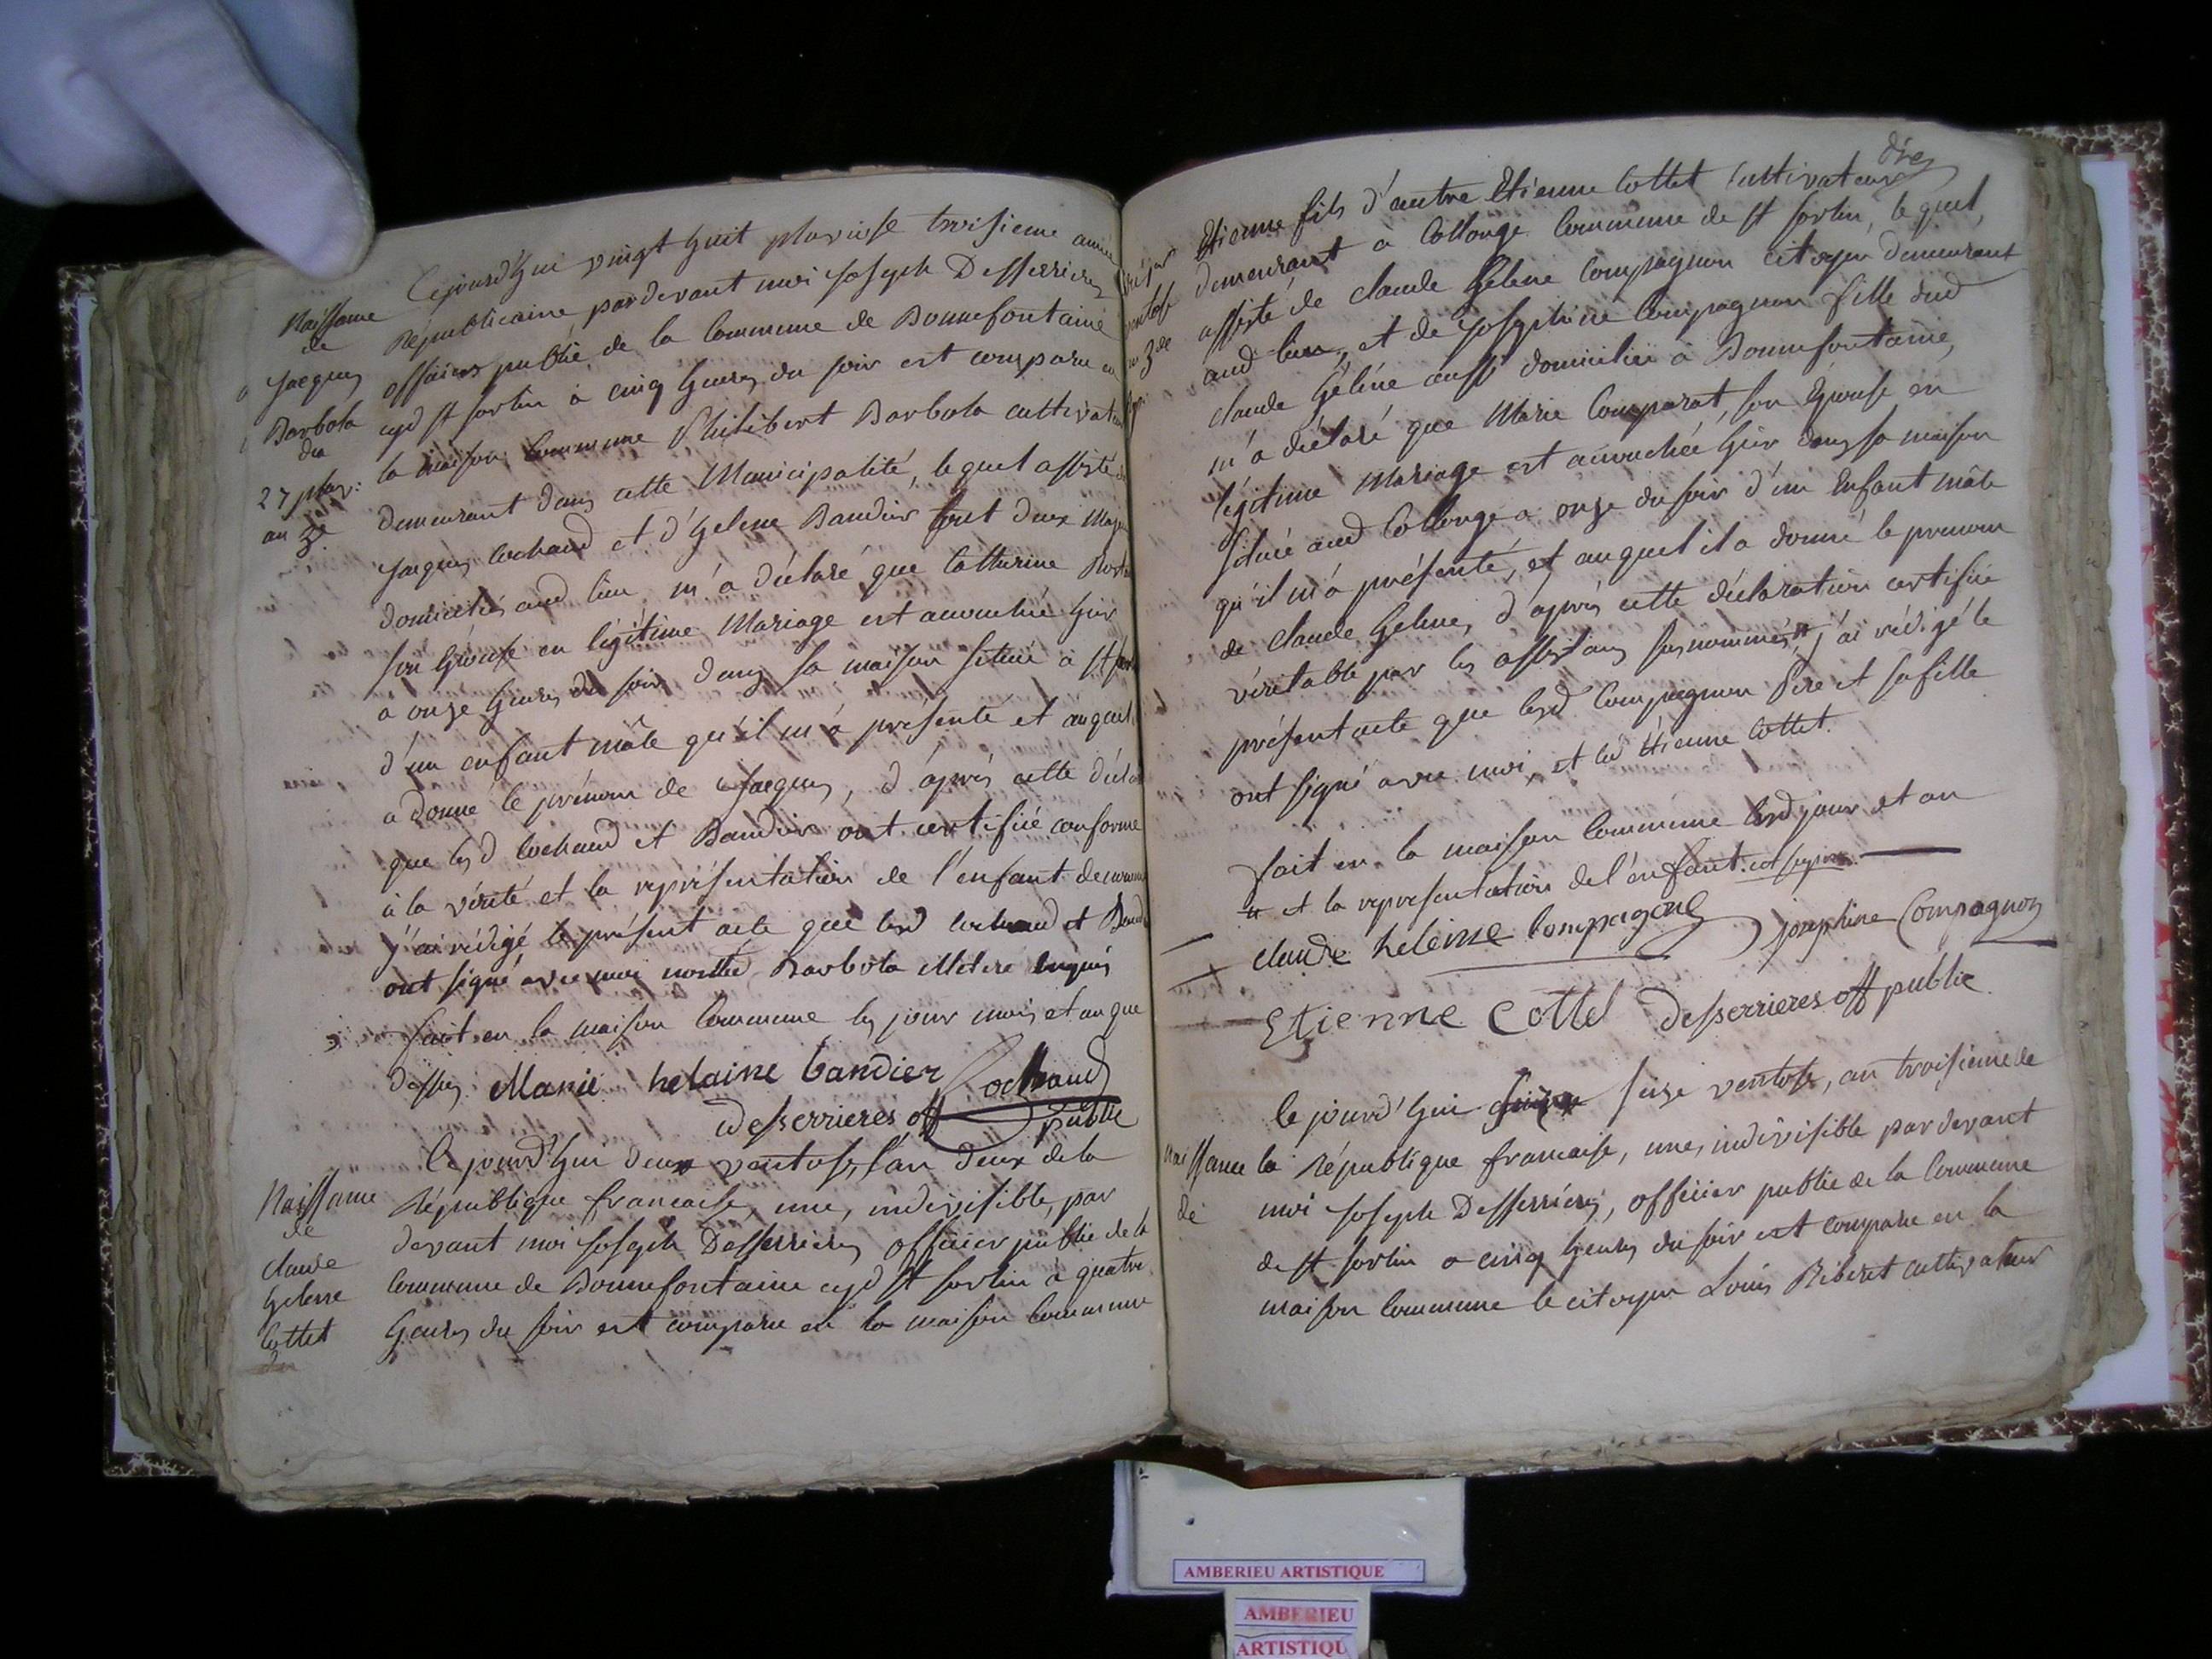 Naissance
de
Jacques
Barbola
du
27 pluv:
an 3e
Cejourd'hui vingt huit pluviose troisieme année
Républicaine pardevant moi Joseph Desserrieres
officier public de la Commune de Bonnefontaine
cyd St Sorlin à cinq heures du soir est comparu en
la maison Commune Philibert Barbola cultivateur
demeurant dans cette Municipalité, lequel assisté de
Jacques Cochaud et d'helene Bandier tout deux Majeurs
domicilié aud lieu m'a déclaré que Catherine
son épouse en légitime Mariage est accouchée hier
à onze heures du soir dans sa maison située à St
d'un enfant mâle qu'il m'a présenté et auquel il
a donné le prénom de Jacques, d'après cette
que lesd Cochaud et Bandier ont certifiée conforme
à la vérité et la représentation de l'enfant dénommé
j'ai rédigé le présent acte que lesd Cochaud et
ont signé avec moi non led Barbola illitéré enquis
fait en la maison Commune les jour mois et an que
dessus Marie helaine bandier Cochaud
desserrieres off public
Naissance
de
claude
helene
Cottet
du
Ce jourd'hui deux ventose, l'an deux de la
République francaise, une, indivisible, par
devant moi Joseph Desserrieres officier public de la
Commune de Bonnefontaine cyd St Sorlin à quatre
heures du soir est comparu en la maison Commune
Etienne fils d'autre Etienne Cottet Cultivateur
demeurant à Collonge Commune de St Sorlin, lequel,
assisté de claude helene Compagnon citoyen demeurant
aud lieu, et de Josephine Compagnon fille dud
claude héléne aussi domiciliée à Bonnefontaine,
m'a déclaré que Marie Comparat, son épouse en
légitime Mariage est accouchée hier dans sa maison
située aud Collonge a onze du soir d'un Enfant mâle
qu'il m'a présenté, et auquel il a donné le prenom
de claude helene, d'après cette déclaration certifiée
véritable par les assistans susnommés, j'ai rédigé le
présent acte que lesd Compagnon Pere et sa fille
ont signé avec moi, et led Etienne Cottet.
fait en la maison Commune lesd jour et an
et la representation de l'enfant.
claude heleine Compagnon josephine Compagnon
Etienne Cottet desserrieres off public
Naissance
de
Ce jourd'hui seize ventose, an troisieme de
la République francaise, une, indivisible pardevant
moi Joseph Desserrieres, officier public de la Commune
de St Sorlin a cinq heures du soir est comparu en la
maison Commune le citoyen Louis Riberet cultivateur
AMBERIEU ARTISTIQUE
AMBERIEU
ARTISTIQU